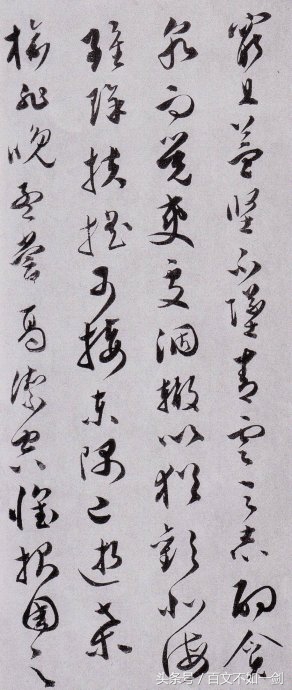 窮且益堅不墜青雲之志酌貪
泉而覺爽處涸轍以猶歡北海
雖賒扶搖可接東隅已逝桑
榆非晚孟嘗高潔空懷報國之
头条号 / 百文不如一剑